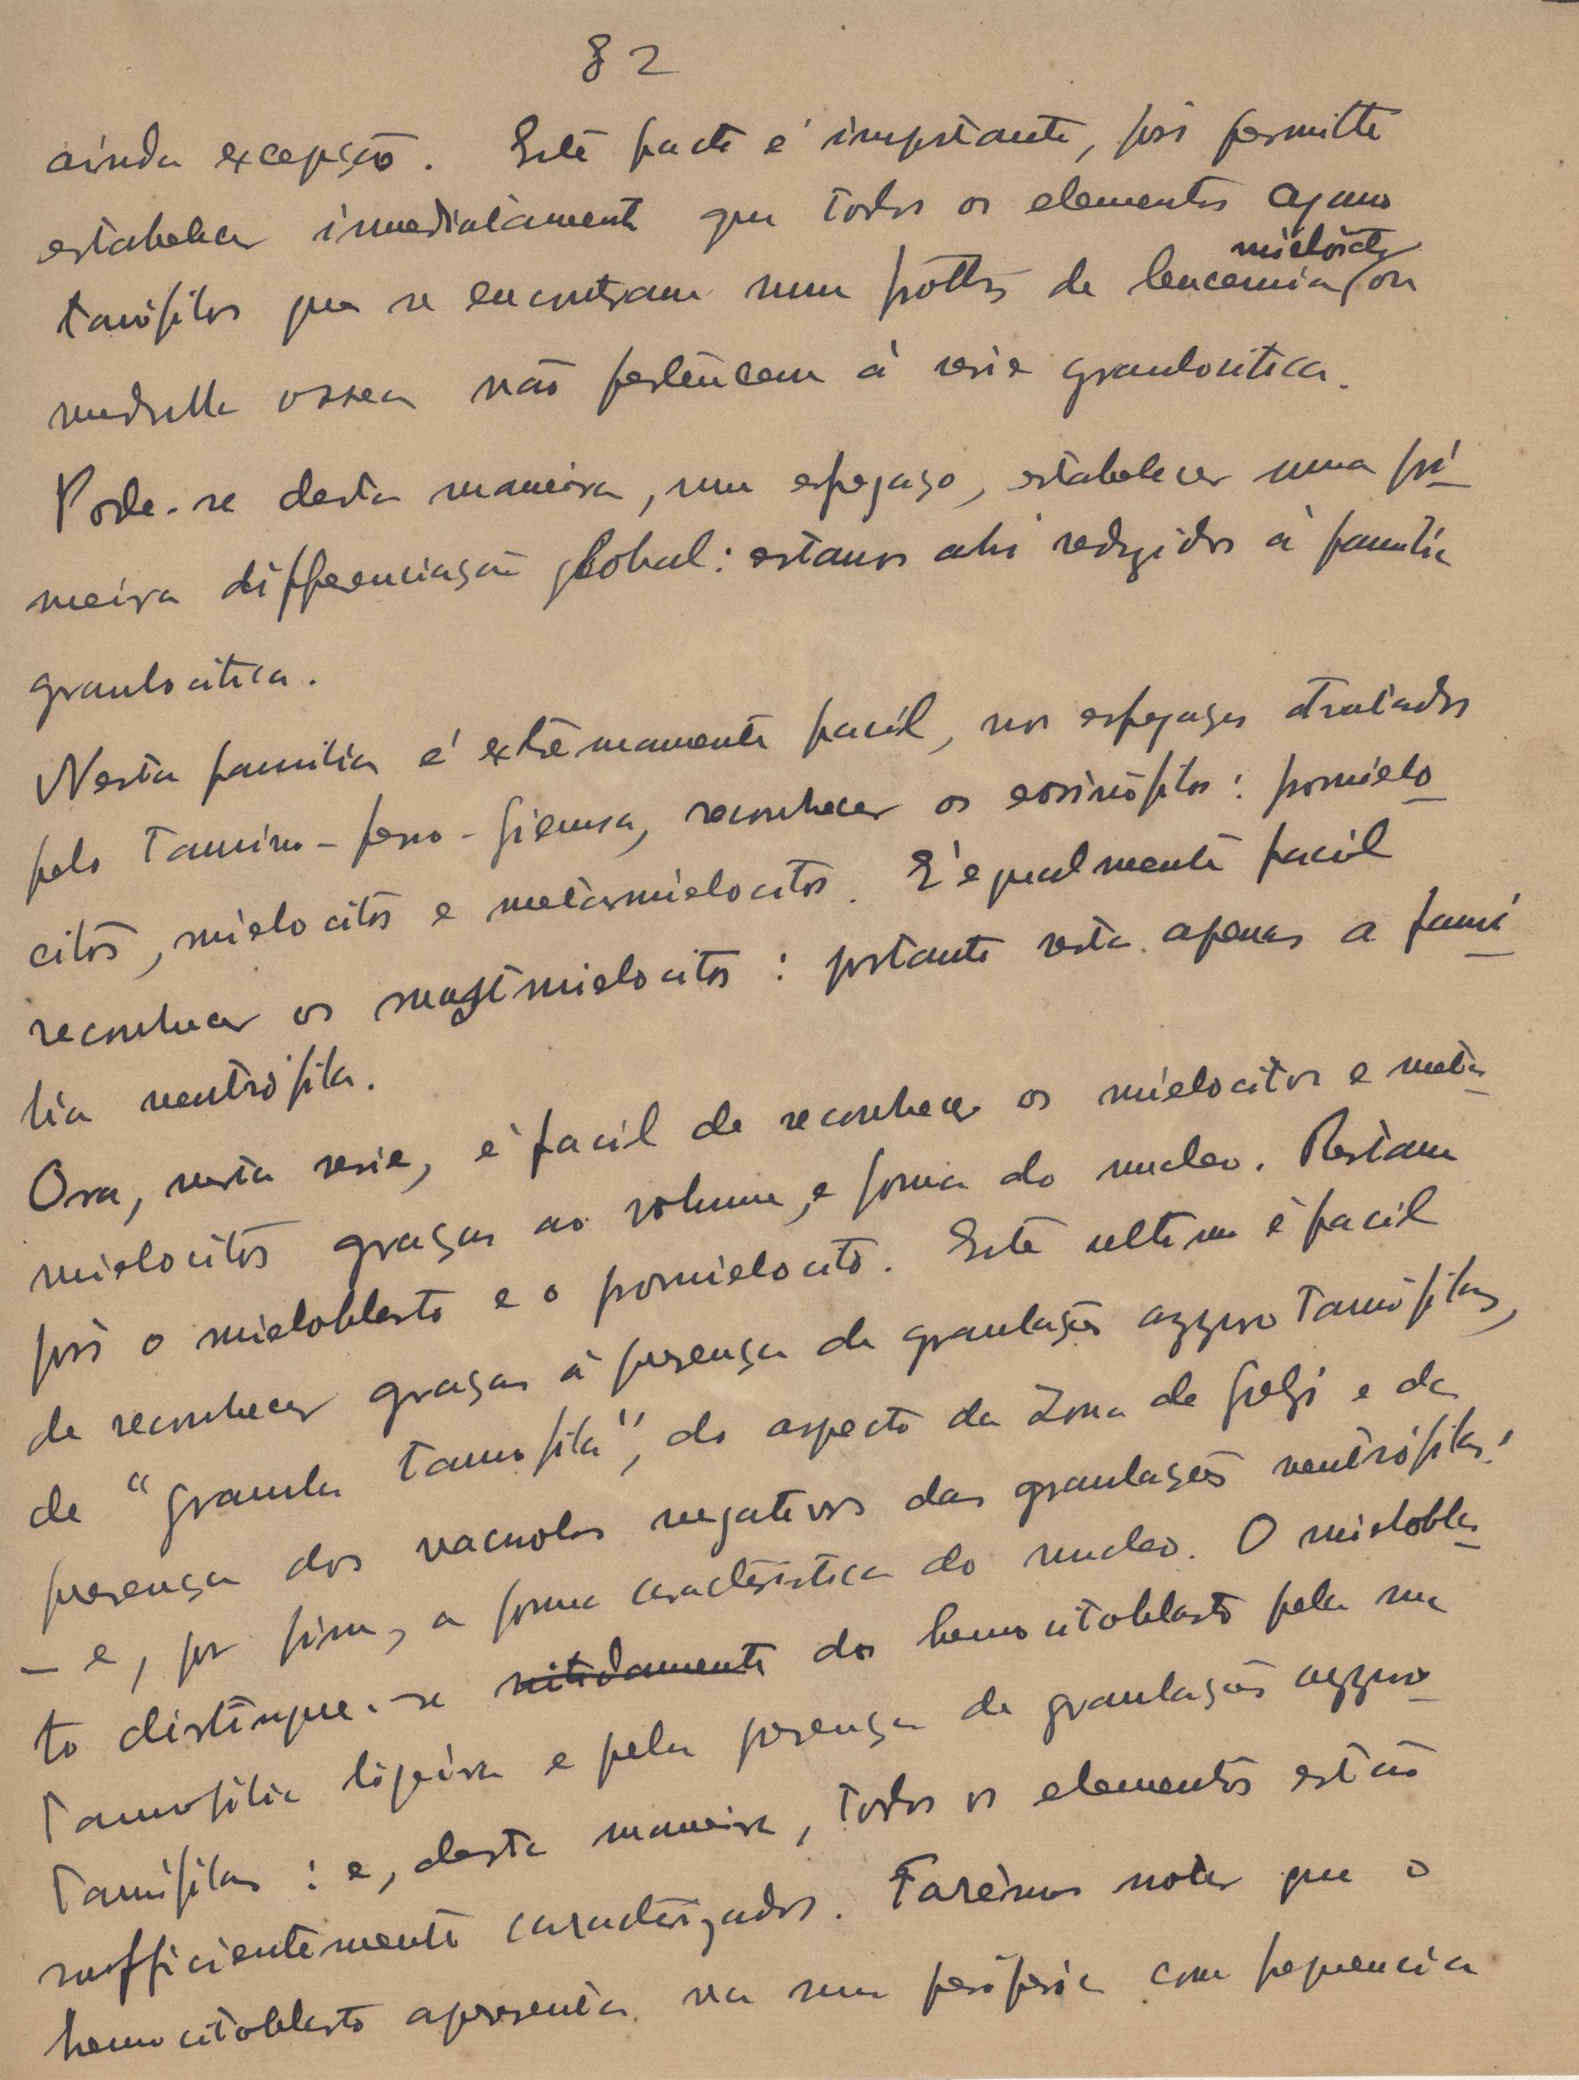 82
ainda excepção. Este facto é importante, pois permitte
estabelecer immediatamente que todos os elementos cyano
mieloide
tanófilos que se encontram num frottis de leucemia ou
medulla ossea não pertencem á serie granulocitica.
Pode-se desta maneira, num esfregaço, estabelecer uma pri-
meira differenciação global: estamos ahi reduzidos á familia
granulocitica.
Nesta familia é extremamente facil, nos esfregaços tratados
pelo tannino-ferro-Giemsa, reconhecer os eosinófilos: promielo-
citos, mielocitos e metamielocitos. E' egualmente facil
reconhecer os mastmielocitos: portanto resta apenas a fami-
lia neutrófila.
Ora, nesta serie, é facil de reconhecer os mielocitos e meta-
mielocitos graças ao volume, e forma do nucleo. Restam
pois o mieloblasto e o promielocito. Este ultimo é facil
de reconhecer graças á presença de granulações azzurotanófilas,
de "granula tanofila", do aspecto da zona de Golgi e da
presença dos vacuolos negativos das granulações neutrófilas;
- e, por fim, a forma caracteristica do nucleo. O mieloblas-
to distingue-se nitidamente do hemocitoblasto pela sua
tanofilia ligeira e pela presença de granulações azzuro-
tanófilas: e, desta maneira, todos os elementos estão
sufficientemente caracterizados. Farêmos notar que o
hemocitoblasto apresenta na sua periferia com frequencia